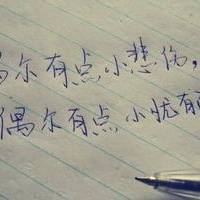 偶尔有点小悲伤,
偶尔有点小忧